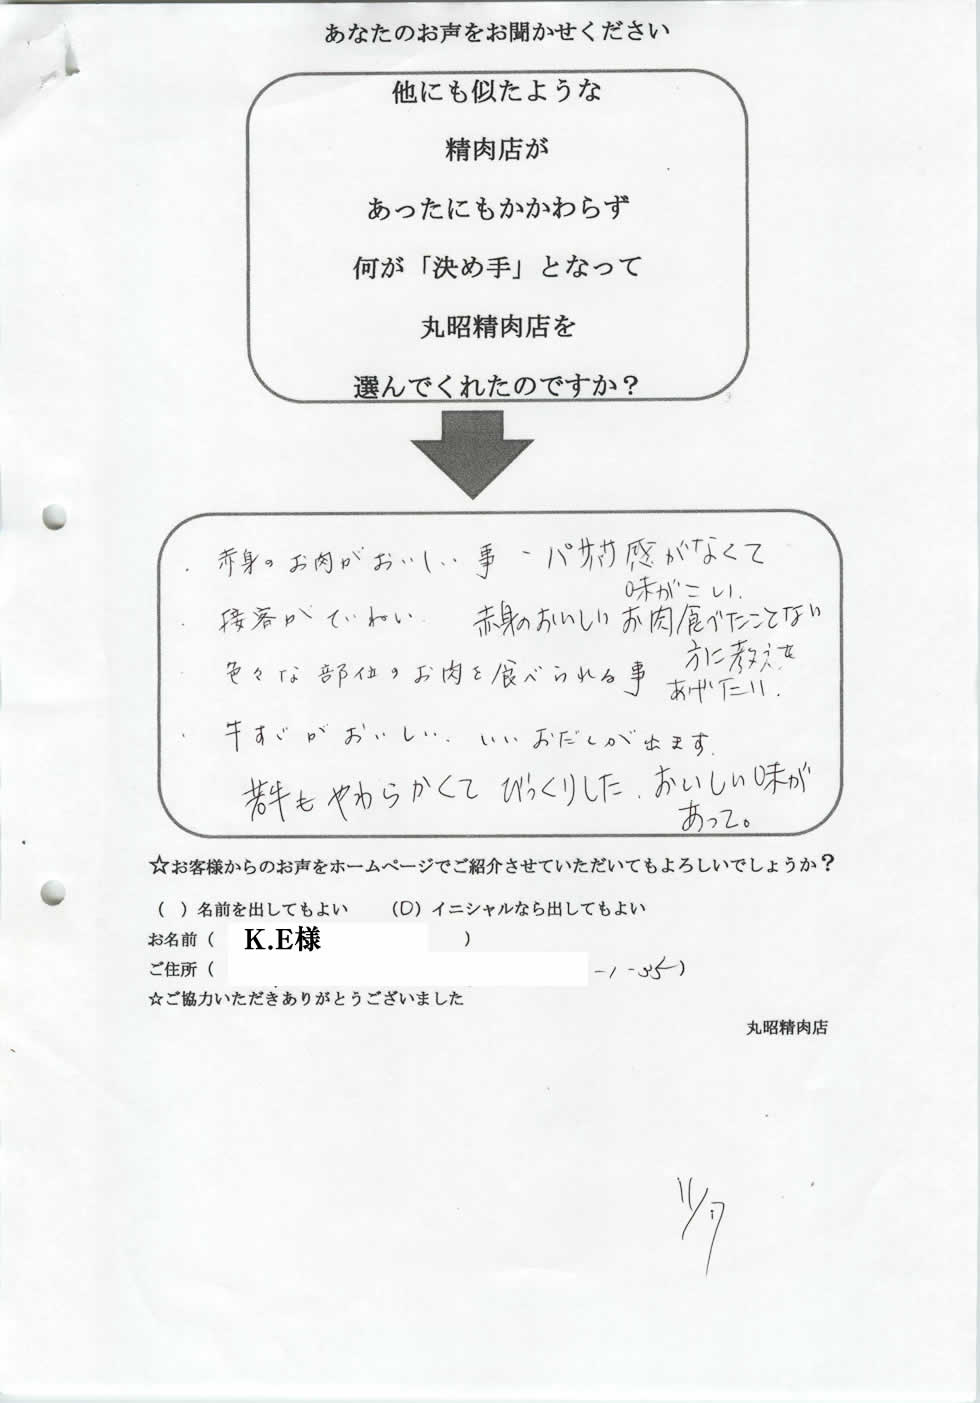 あなたのお声をお聞かせください
他にも似たような
精肉店が
あったにもかかわらず
何が「決め手」となって
丸昭精肉店を
選んでくれたのですか？
・赤身のお肉がおいしい事 - パサパサ感がなくて
味がこい.
・接客がていねい.
赤身のおいしいお肉食べたことない
方に教えて
あげたい.
・色々な部位のお肉を食べられる事
・牛すじがおいしい. いいおだしが出ます.
若牛もやわらかくてびっくりした. おいしい味が
あって。
☆お客様からのお声をホームページでご紹介させていただいてもよろしいでしょうか？
（　）名前を出してもよい　　（O）イニシャルなら出してもよい
お名前（　K.E様　）
ご住所（　-1-35）
☆ご協力いただきありがとうございました
丸昭精肉店
11/17